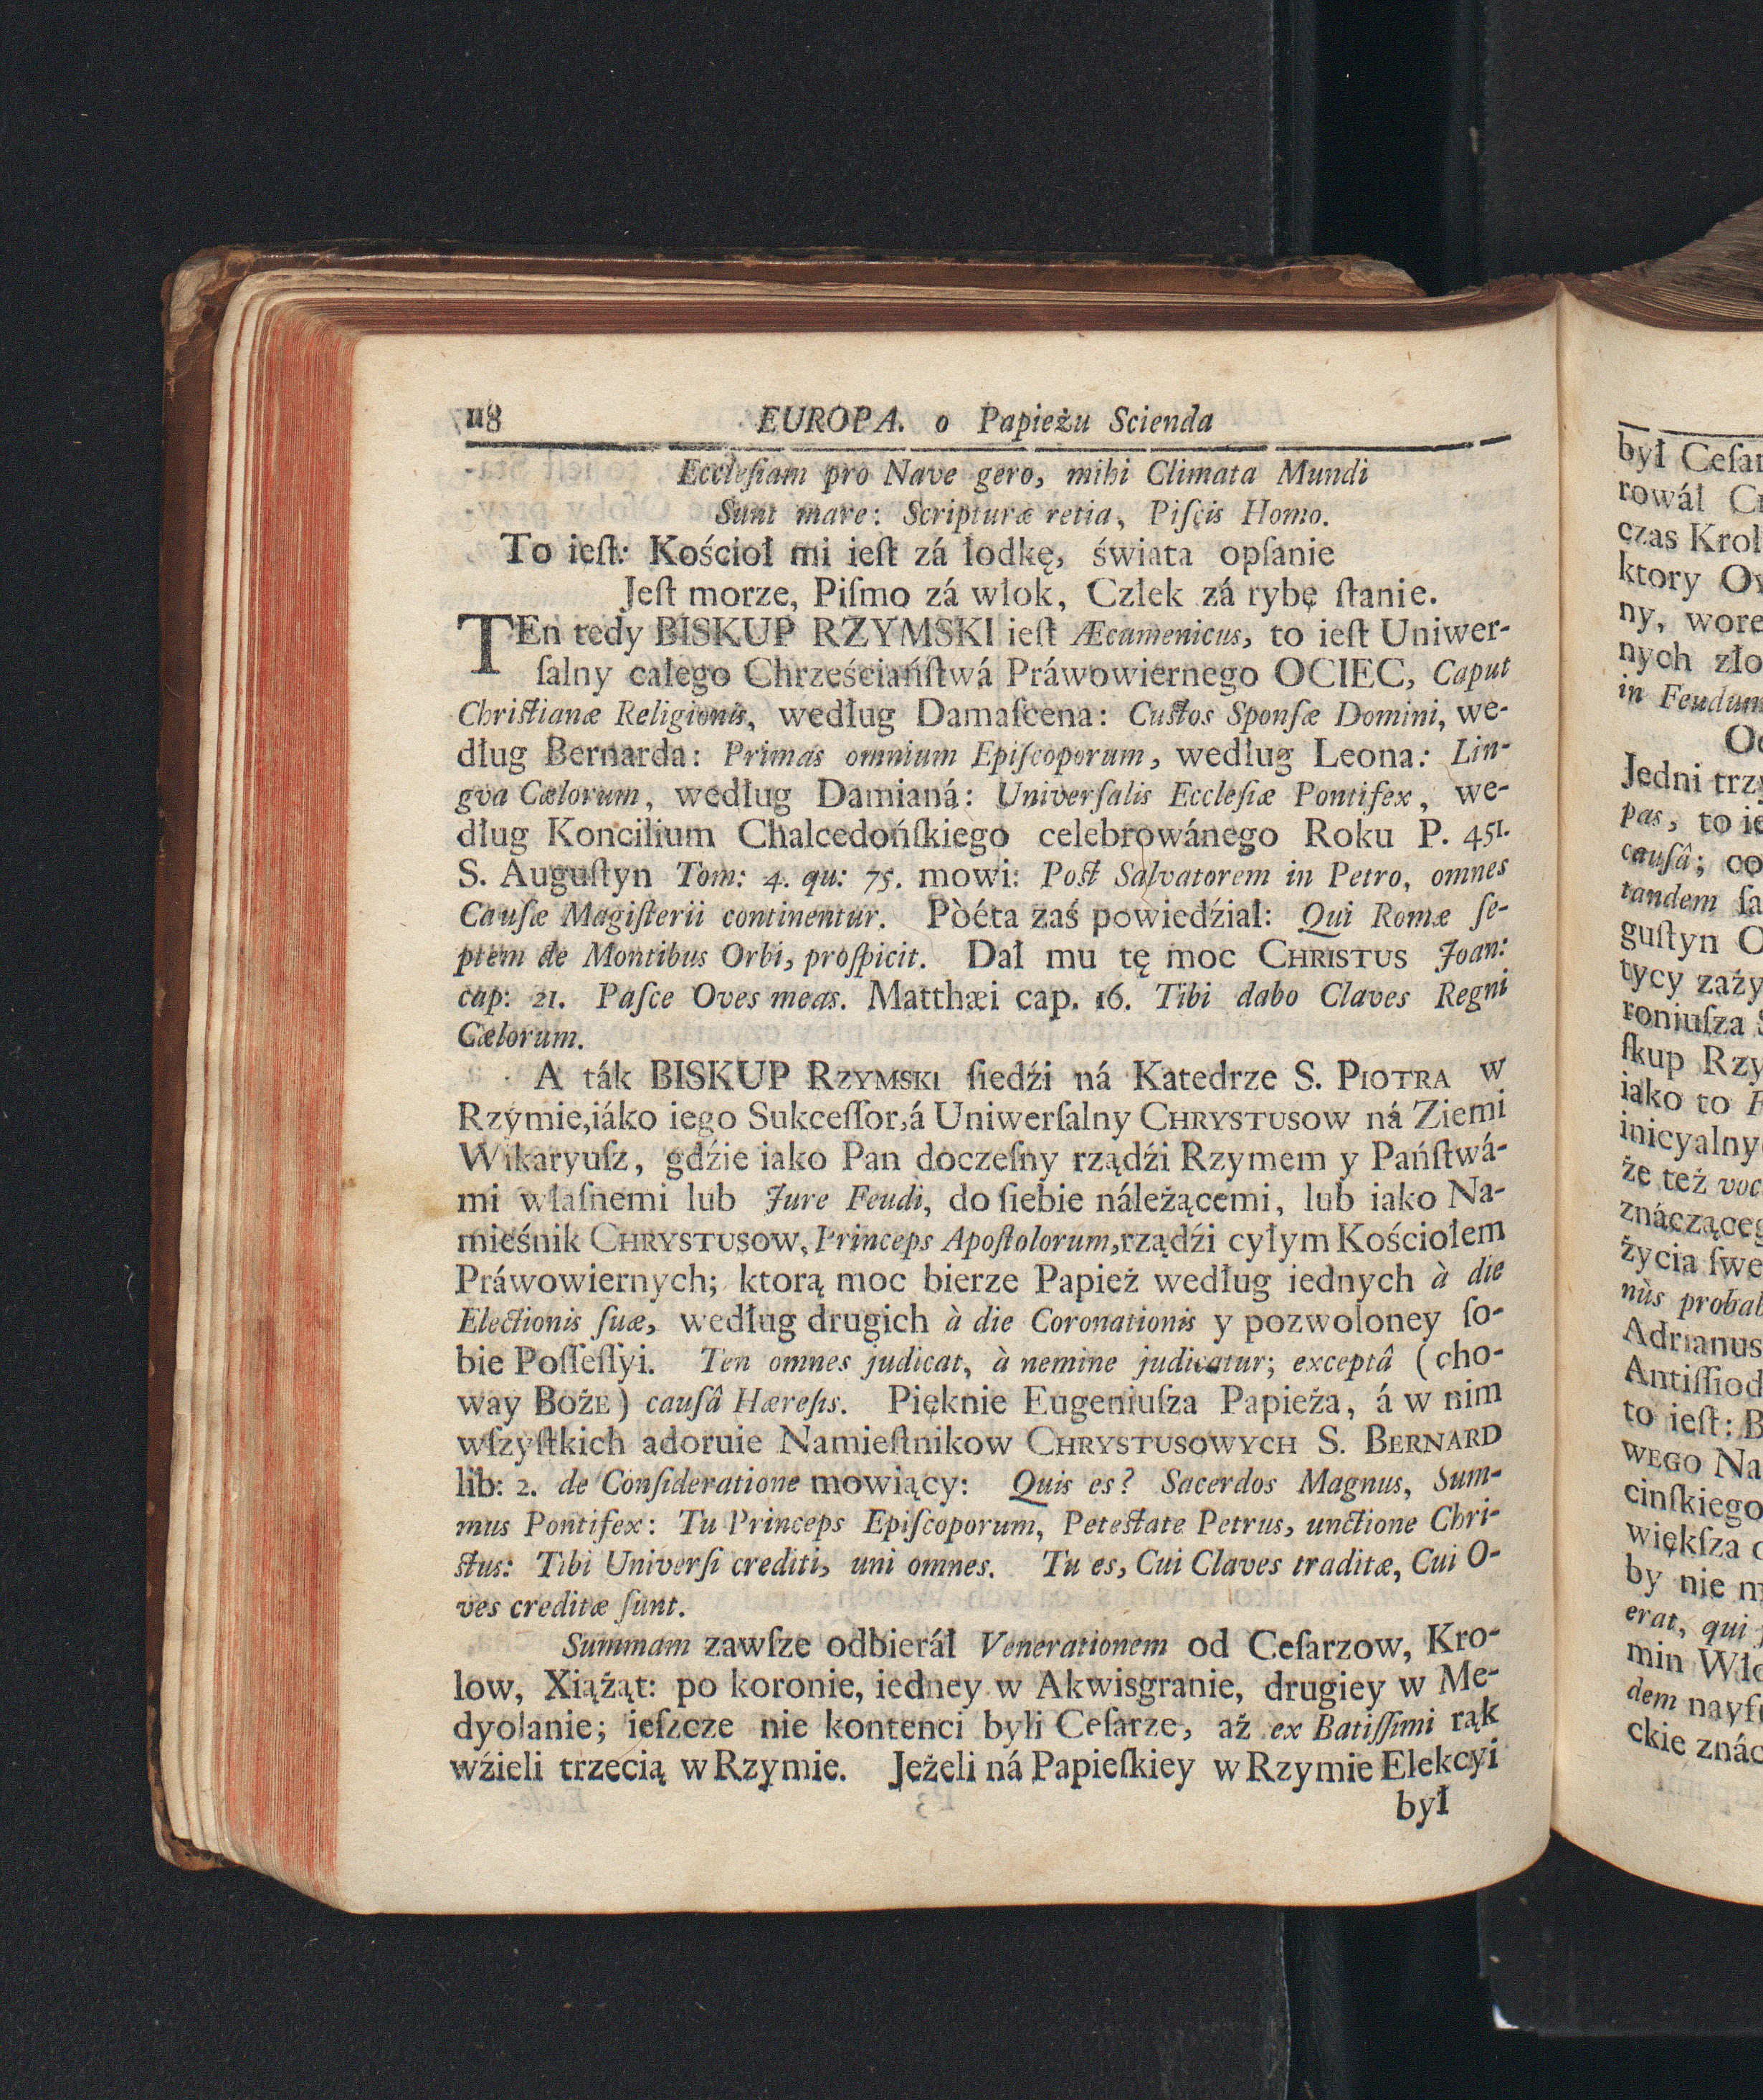 118 EUROPA. o Papieżu Scienda
Ecclesiam pro Nave gero, mihi Climata Mundi
Sunt mare: Scripturæ retia, Piſcis Homo.
To ieſt: Kościoł mi ieſt zá łodkę, świata opſanie
Jeſt morze, Piſmo zá włok, Człek zá rybę ſtanie.
TEn tedy BISKUP RZYMSKI ieſt Æcumenicus, to ieſt Uniwer-
ſalny całego Chrześciańſtwá Práwowiernego OCIEC, Caput
Chriſtianæ Religionis, według Damaſcena: Cuſtos Sponſæ Domini, we-
dług Bernarda: Primas omnium Epiſcoporum, według Leona: Lin-
gva Cælorum, według Damianá: Univerſalis Eccleſiæ Pontifex, we-
dług Koncilium Chalcedońſkiego celebrowánego Roku P. 451.
S. Auguſtyn Tom: 4. qu: 75. mowi: Poſt Salvatorem in Petro, omnes
Cauſæ Magiſterii continentur. Pòéta zaś powiedźiał: Qui Romæ ſe-
ptem de Montibus Orbi, proſpicit. Dał mu tę moc CHRISTUS Joan:
cap: 21. Paſce Oves meas. Matthæi cap. 16. Tibi dabo Claves Regni
Cælorum.
A ták BISKUP RZYMSKI ſiedźi ná Katedrze S. PIOTRA w
Rzymie,iáko iego Sukceſſor,á Uniwerſalny CHRYSTUSOW ná Ziemi
Wikaryuſz, gdźie iako Pan doczeſny rządźi Rzymem y Pańſtwá-
mi właſnemi lub Jure Feudi, do ſiebie náleżącemi, lub iako Na-
mieśnik CHRYSTUSOW, Princeps Apoſtolorum,rządźi cyłym Kościołem
Práwowiernych; ktorą moc bierze Papież według iednych à die
Electionis ſuæ, według drugich à die Coronationis y pozwoloney ſo-
bie Poſſeſſyi. Ten omnes judicat, à nemine judicatur; exceptâ (cho-
way BOŻE) cauſâ Hæreſis. Pięknie Eugeniuſza Papieża, á w nim
wſzyſtkich adoruie Namieſtnikow CHRYSTUSOWYCH S. BERNARD
lib: 2. de Conſideratione mowiący: Quis es? Sacerdos Magnus, Sum-
mus Pontifex: Tu Princeps Epiſcoporum, Peteſtate Petrus, unctione Chri-
ſtus: Tibi Univerſi crediti, uni omnes. Tu es, Cui Claves traditæ, Cui O-
ves creditæ ſunt.
Summam zawſze odbieráł Venerationem od Ceſarzow, Kro-
low, Xiążąt: po koronie, iedney w Akwisgranie, drugiey w Me-
dyolanie; ieſzcze nie kontenci byli Ceſarze, aż ex Batiſſimi rąk
wźieli trzecią w Rzymie. Jeżeli ná Papieſkiey w Rzymie Elekcyi
był
był Ceſar
rowáł
czas Krol
ktory
ny, wore
nych zło
in Feudum
Jedni trz
pas, to ie
cauſâ; co
tandem ſa
guſtyn
tycy zaży
roniuſza
ſkup Rzy
iako to
inicyalny
że też voc
znáczące
życia ſwe
nùs probab
Adrianus
Antiſſiod
to ieſt: B
WEGO Na
cinſkiego
więkſza
by nie m
erat, qui
min Wło
dem nayſ
ckie znác